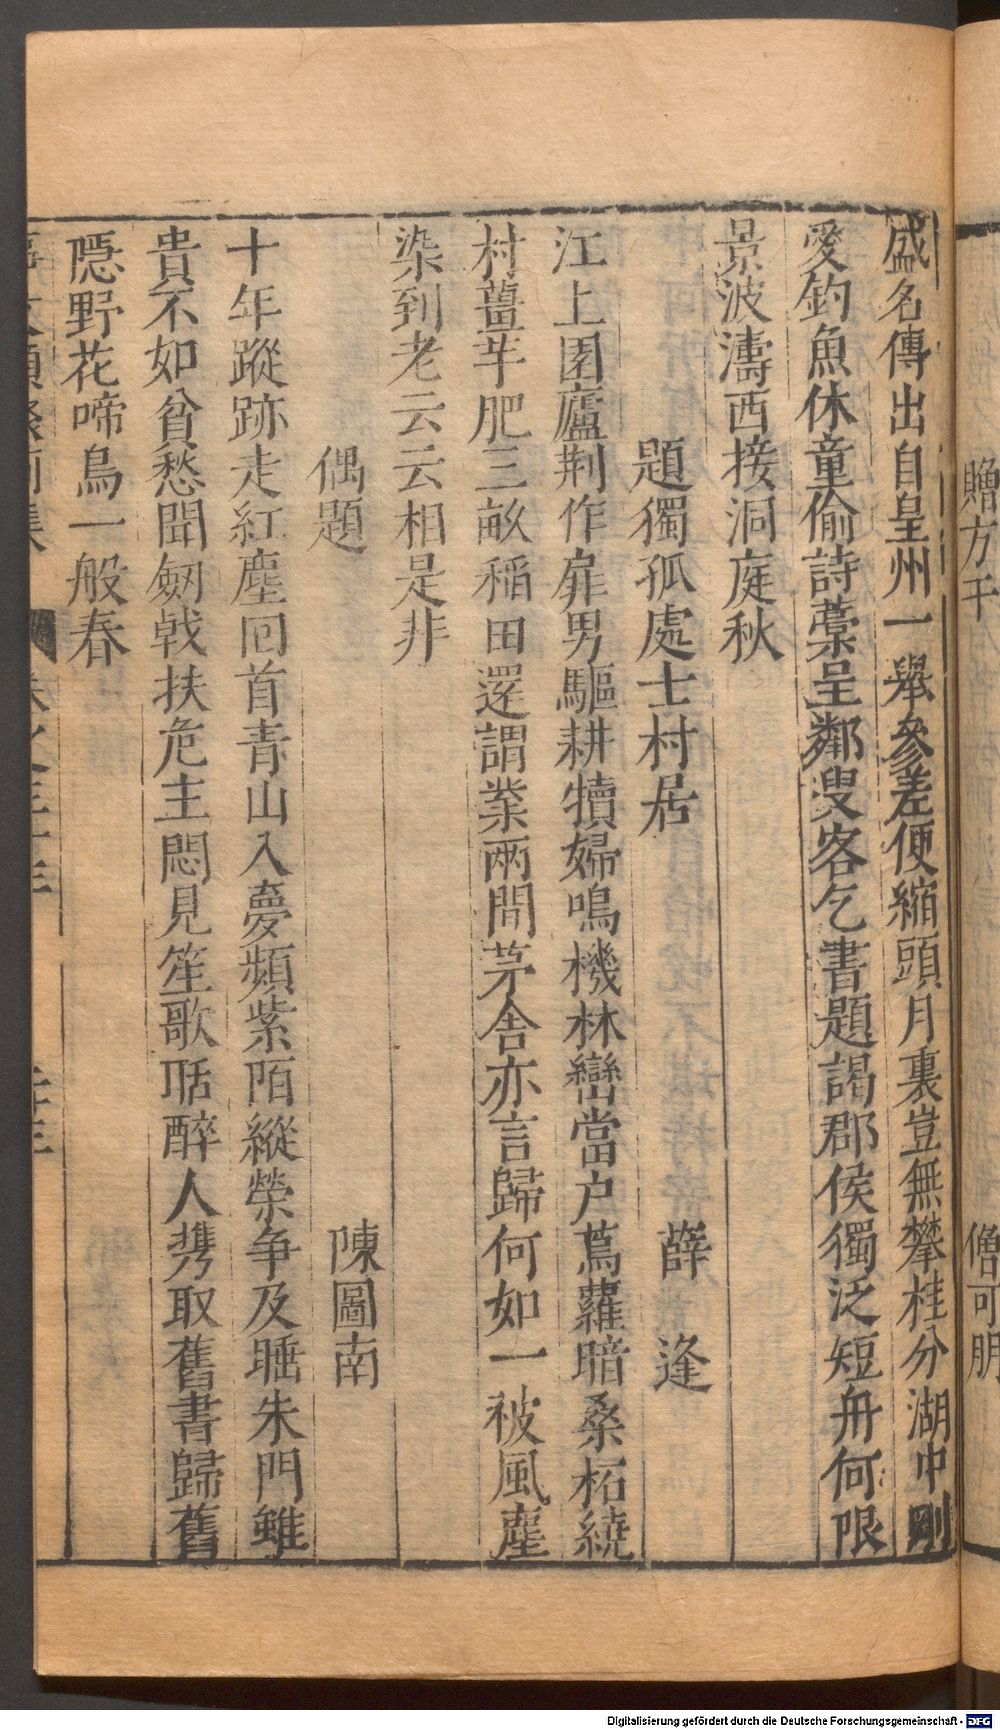 贈方干 僧可朋
盛名傳出自皇州一舉參差便縮頭月裏豈無攀桂分湖中剛
愛釣魚休童偷詩藁呈鄰叟客乞書題謁郡侯獨泛短舟何限
景波濤西接洞庭秋
題獨孤處士村居 薛逢
江上園廬荆作扉男驅耕犢婦鳴機林巒當户蔦蘿暗桑柘繞
村薑芋肥三畝稲田還謂業兩間茅舍亦言歸何如一被風塵
染到老云云相是非
偶題 陳圖南
十年蹤跡走紅塵囘首青山入夢頻紫陌縱榮争及睡朱門雖
貴不如貧愁聞劒戟扶危主悶見笙歌聒醉人携取舊書歸舊
隱野花啼鳥一般春
Digitalisierung gefördert durch die Deutsche Forschungsgemeinschaft - DFG